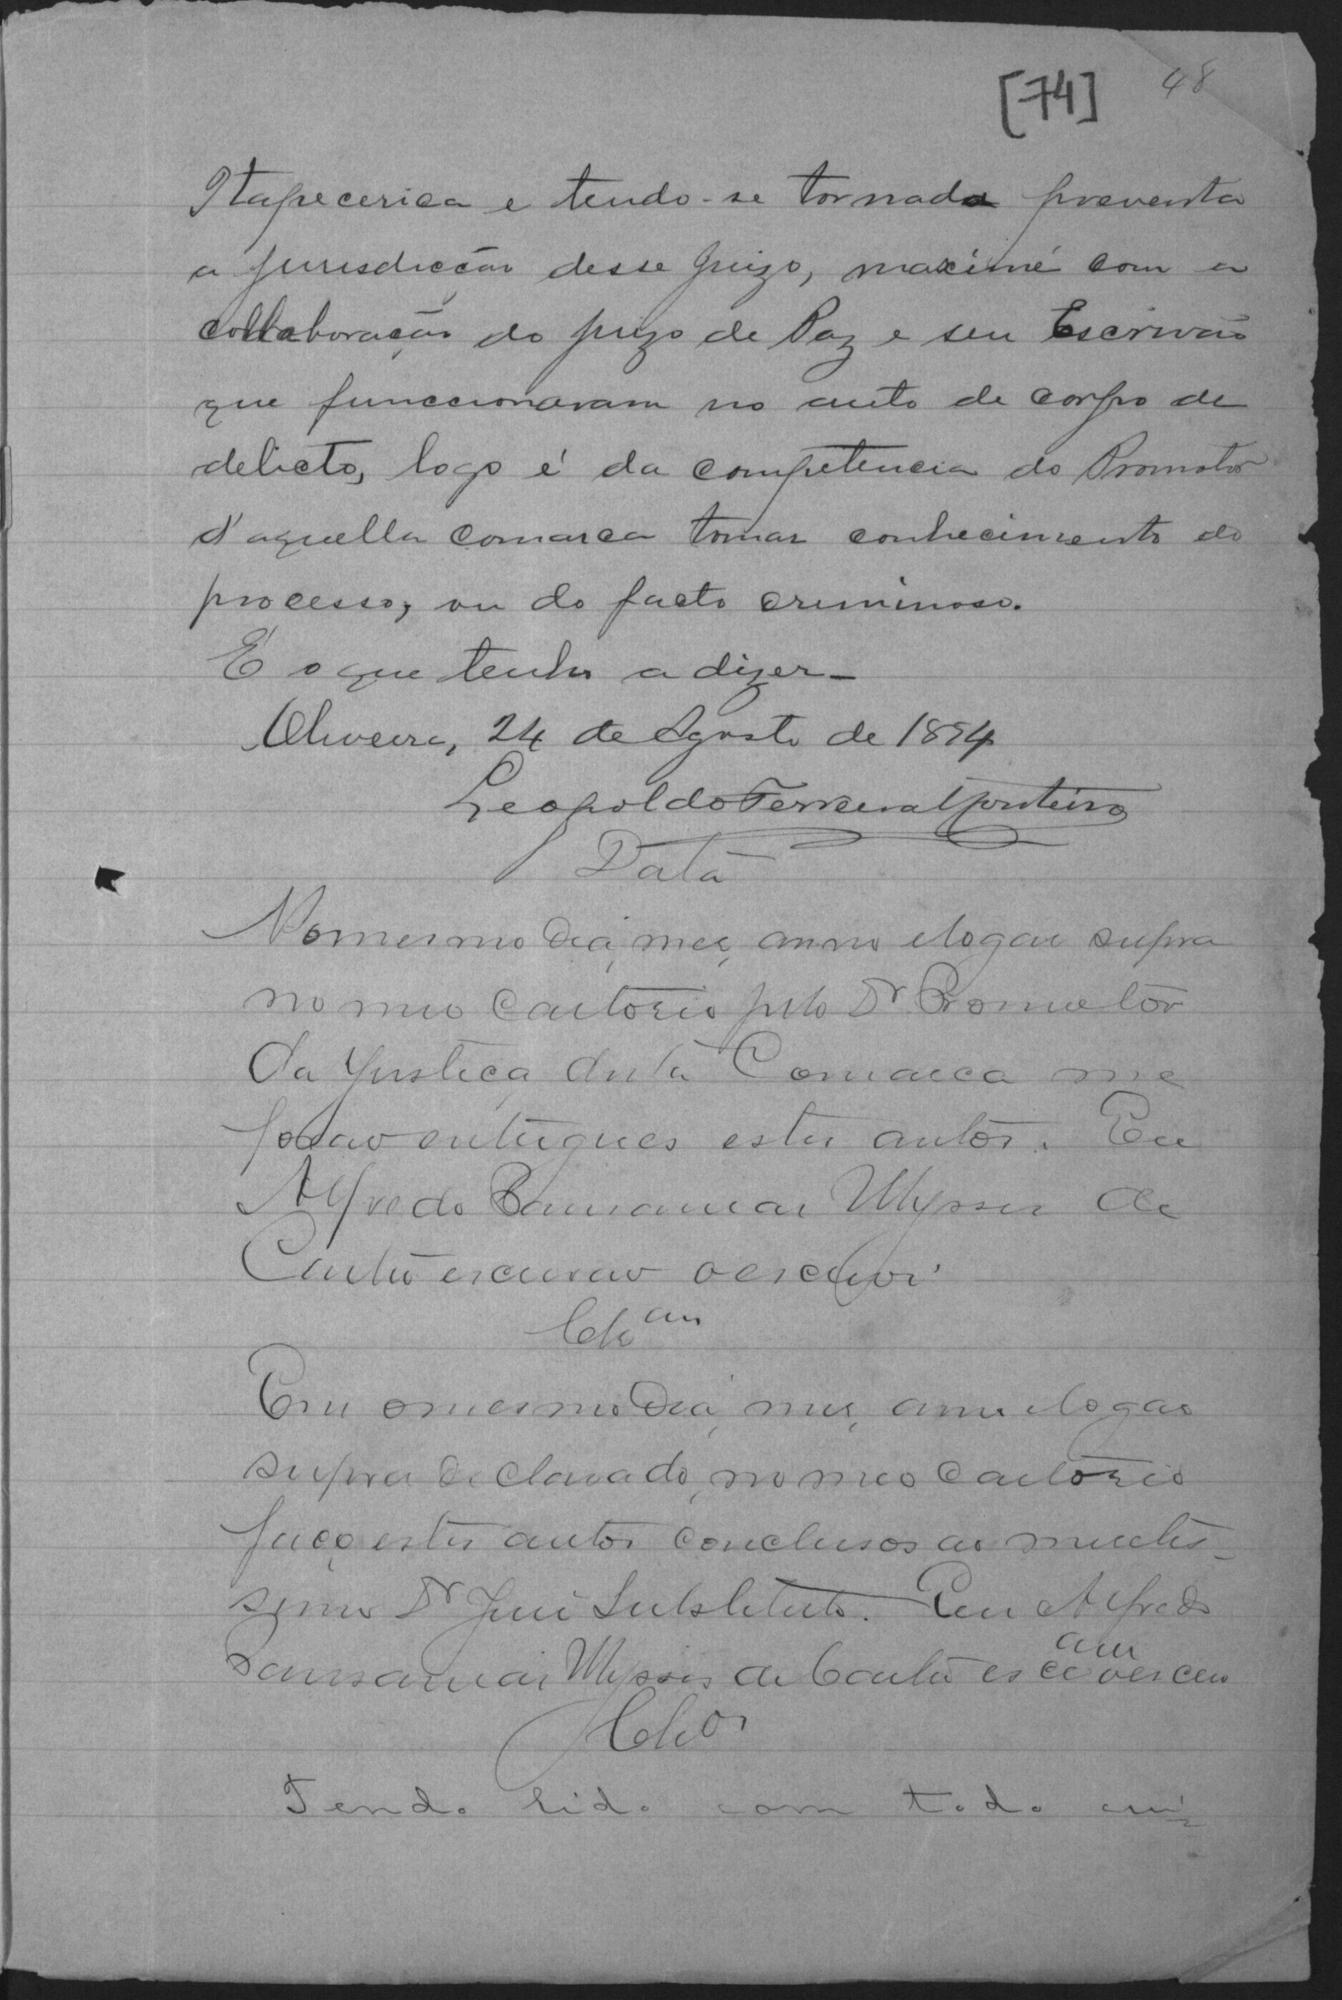 [74] 48
Itapecerica e tendo-se tornada preventa
a jurisdicção desse Juizo, maximé com a
collaboração do juizo de Paz e seu Escrivão
que funccionaram no auto de corpo de
delicto, logo é da competencia do Promotor
d'aquella comarca tomar conhecimento do
processo, ou do facto criminoso.
É o que tenho a dizer_
Oliveira, 24 de Agosto de 1894
Leopoldo Ferreira Monteiro
Data
No mesmo dia, mes, anno e logar supra
no meo cartorio pelo Dr Promotor
da Justiça desta Comarca me
forão entregues estes autos. Eu
Alfredo Ulysses de
Castro escrivão o escrevi
Clsam
Em o mesmo dia, mes, anno e logar
supra declarado, no meo cartorio
faço estes autos conclusos ao meretis-
simo Dr Juiz Substituto. Eu Alfredo
Ulysses de Castro
Clsos
Tendo lido com todo cui-